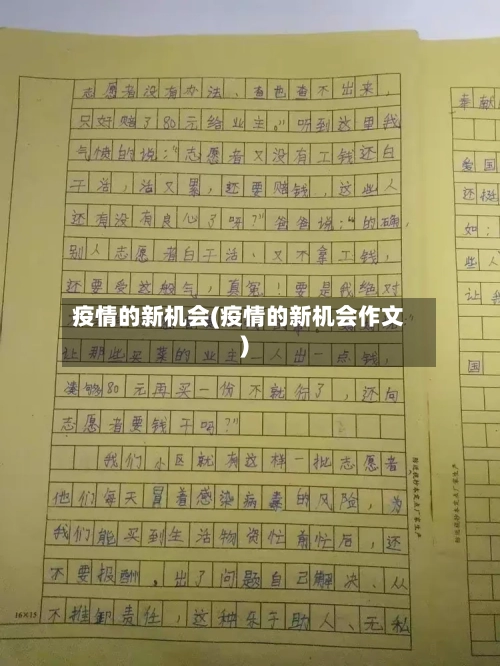 志愿者没有办法、查也查不出来，
只好赔了80元给业主。"听到这里我
气愤的说："志愿者又没有工钱还白
干活，活又累，还要赔钱，这些人
还有没有良心了呀？"爸爸说："的确，
别人志愿者白干活、又不拿工钱，
还要受这般气，真冤！要是我绝对
疫情的新机会(疫情的新机会作文
)
让那些买菜的业主一人出一点钱，
凑够80元再买一份不就行了，还向
志愿者要钱干吗？"
我们小区就有这样一批志愿者
他们每天冒着感染病毒的风险，为
我们能买到生活物资忙前忙后，还
不要报酬。出了问题自己解决、从
不推卸责任，这种乐于助人、无私
16×15
奉献
爱国
还挺
如：
些人
让我
国